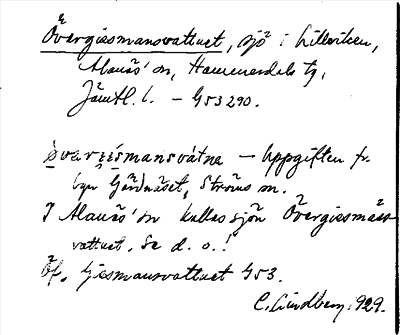 Övergiesmansvattnet, sjö i Lillviken,
Alanäs' sn, Hammerdals tg,
Jämtl. l. – G53290.
ȯvargiśmansvátnə – Uppgiften fr.
byn Gärdnäset, Ströms sn.
I Alanäs' sn kallas sjön Övergiesmans-
vattnet. Se d. o.!
Öf. Giesmansvattnet G53.
C. Lindberg. 1929.